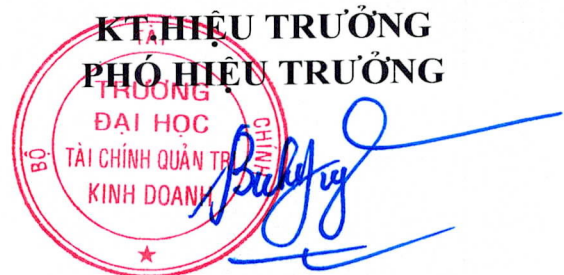 KT.HIỆU TRƯỞNG
PHÓ HIỆU TRƯỞNG
BỘ TÀI CHÍNH
TRƯỜNG
ĐẠI HỌC
TÀI CHÍNH QUẢN TR
KINH DOANH